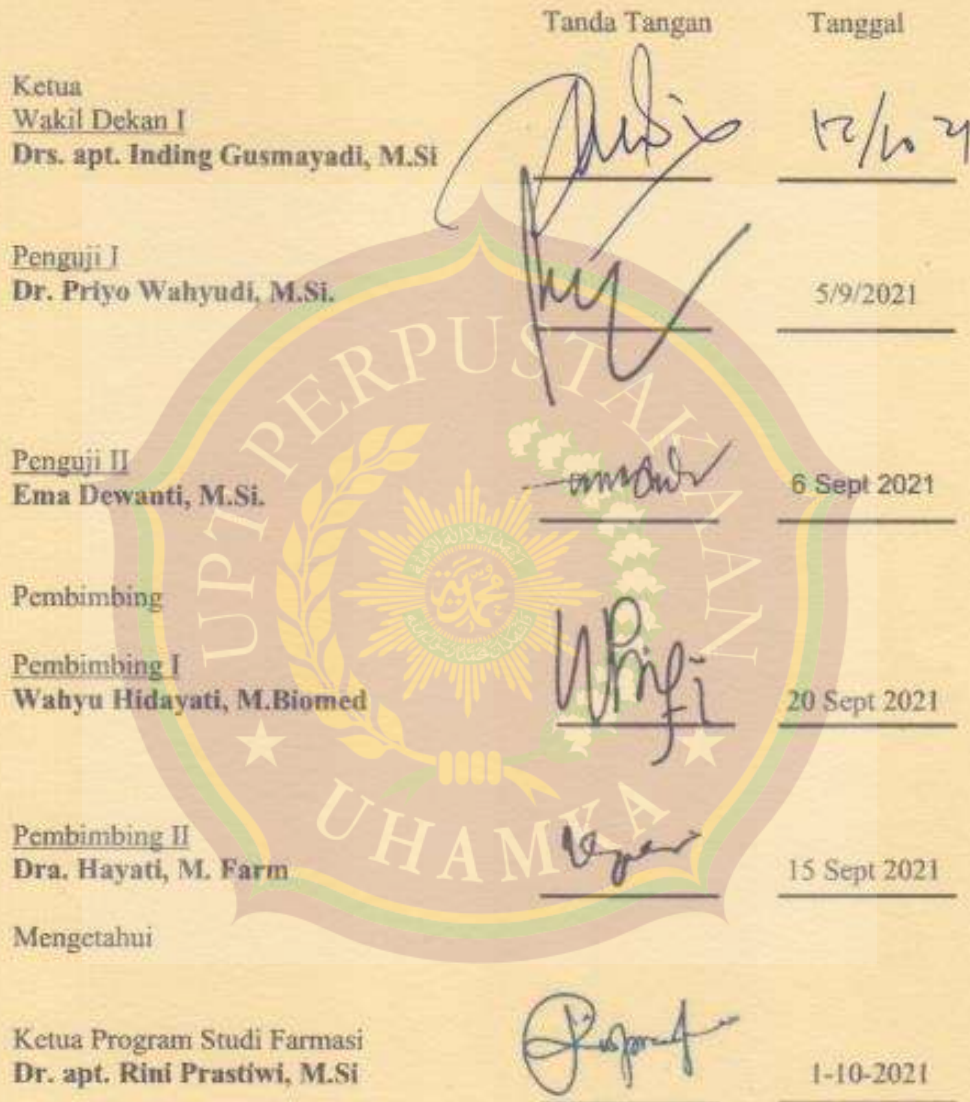 Tanda Tangan Tanggal
Ketua
Wakil Dekan I
Drs. apt. Inding Gusmayadi, M.Si
Penguji I
Dr. Priyo Wahyudi, M.Si. 5/9/2021
Penguji II
Ema Dewanti, M.Si. 6 Sept 2021
Pembimbing
Pembimbing I
Wahyu Hidayati, M.Biomed 20 Sept 2021
Pembimbing II
Dra. Hayati, M. Farm 15 Sept 2021
Mengetahui
Ketua Program Studi Farmasi
Dr. apt. Rini Prastiwi, M.Si 1-10-2021
UPT PERPUSTAKAAN
UHAMKA